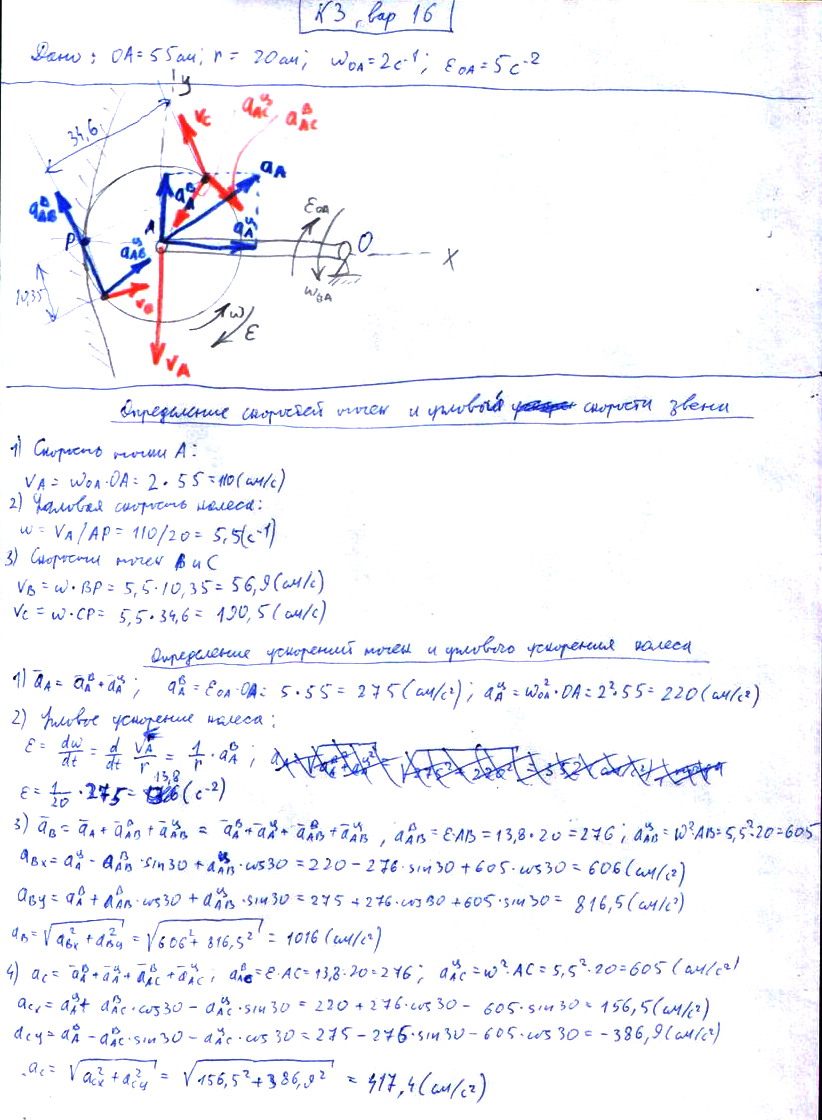 К3, вар 16
Дано: OA = 55 см; r = 20 см; ω_OA = 2 с⁻¹; ε_OA = 5 с⁻²
y
34,6
v_C
a_AC^ц
a_AC^в
a_A
a_A^в
a_AB^в
P
A
a_AB^ц
a_A^ц
ε_OA
O
X
10,35
v_B
ω
ε
ω_OA
v_A
Определение скоростей точек и угловой скорости звена
1) Скорость точки A:
v_A = ω_OA·OA = 2·55 = 110 (см/с)
2) Угловая скорость колеса:
ω = v_A/AP = 110/20 = 5,5 (с⁻¹)
3) Скорости точек B и C
v_B = ω·BP = 5,5·10,35 = 56,9 (см/с)
v_C = ω·CP = 5,5·34,6 = 190,5 (см/с)
Определение ускорений точек и углового ускорения колеса
1) a̅_A = a̅_A^в + a̅_A^ц; a_A^в = ε_OA·OA = 5·55 = 275 (см/с²); a_A^ц = ω_OA²·OA = 2²·55 = 220 (см/с²)
2) Угловое ускорение колеса:
ε = dω/dt = d/dt v_A/r = 1/r · a_A^в;
ε = 1/20 · 275 = 13,8 (с⁻²)
3) a̅_B = a̅_A + a̅_AB^в + a̅_AB^ц = a̅_A^в + a̅_A^ц + a̅_AB^в + a̅_AB^ц, a_AB^в = ε·AB = 13,8·20 = 276; a_AB^ц = ω²·AB = 5,5²·20 = 605
a_Bx = a_A^ц - a_AB^в·sin30 + a_AB^ц·cos30 = 220 - 276·sin30 + 605·cos30 = 606 (см/с²)
a_By = a_A^в + a_AB^в·cos30 + a_AB^ц·sin30 = 275 + 276·cos30 + 605·sin30 = 816,5 (см/с²)
a_B = √(a_Bx² + a_By²) = √(606² + 816,5²) = 1016 (см/с²)
4) a_C = a̅_A^в + a̅_A^ц + a̅_AC^в + a̅_AC^ц; a_AC^в = ε·AC = 13,8·20 = 276; a_AC^ц = ω²·AC = 5,5²·20 = 605 (см/с²)
a_Cx = a_A^ц + a_AC^в·cos30 - a_AC^ц·sin30 = 220 + 276·cos30 - 605·sin30 = 156,5 (см/с²)
a_Cy = a_A^в - a_AC^в·sin30 - a_AC^ц·cos30 = 275 - 276·sin30 - 605·cos30 = -386,9 (см/с²)
a_C = √(a_Cx² + a_Cy²) = √(156,5² + 386,9²) = 417,4 (см/с²)